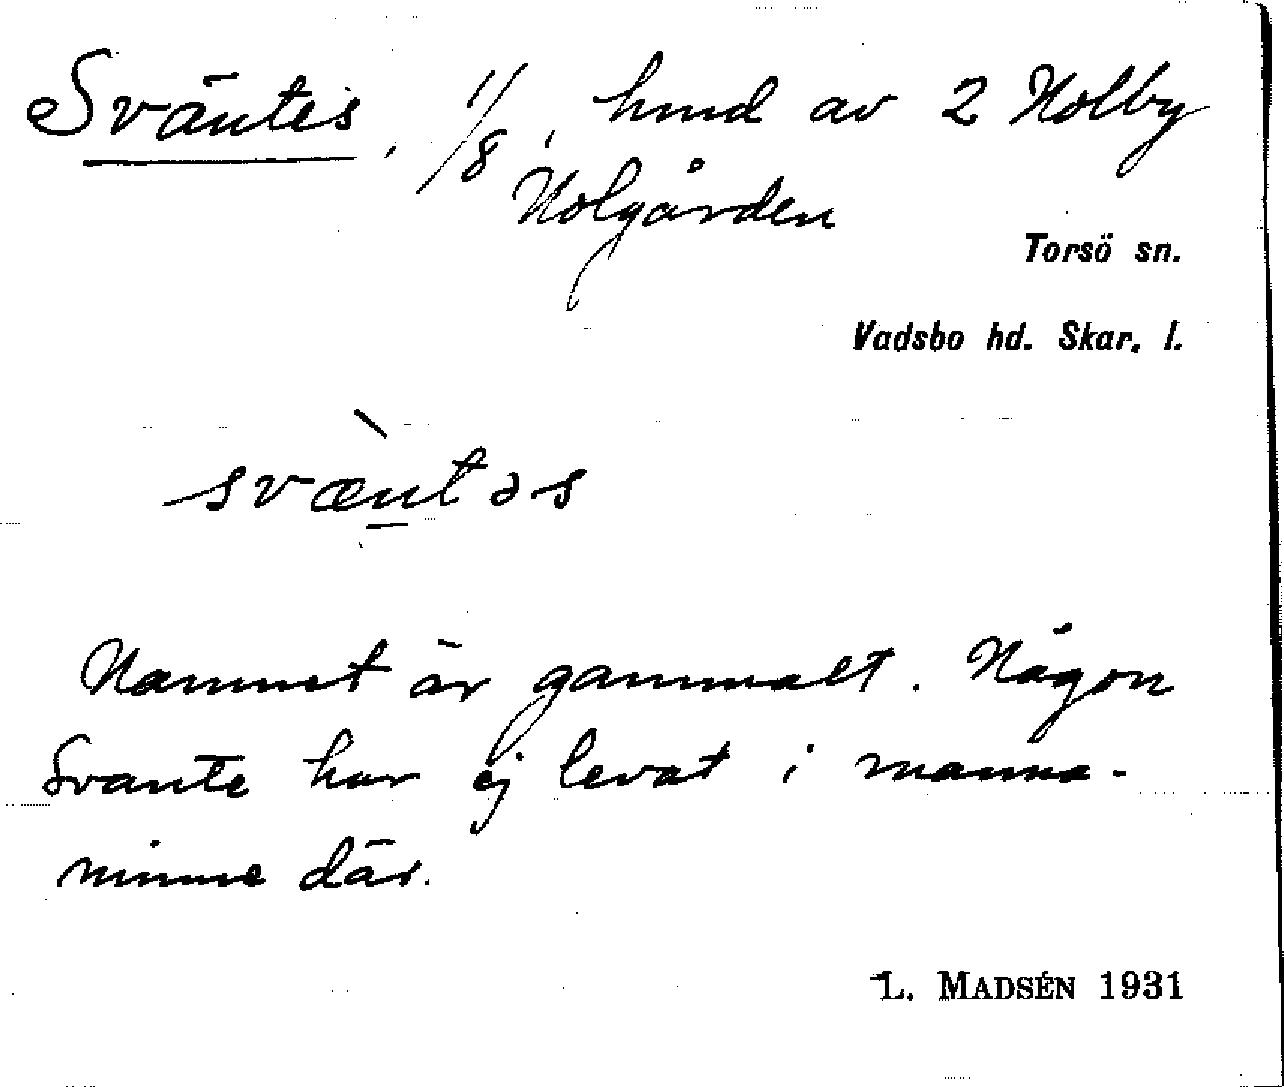 Sväntes, 1/8, hmd av 2 Holby
Holgården
Torsö sn.
Vadsbo hd. Skar. l.
svæ̀ntəs
Namnet är gammalt. Någon
Svante har ej levat i manna-
minne där.
L. MADSÉN 1931